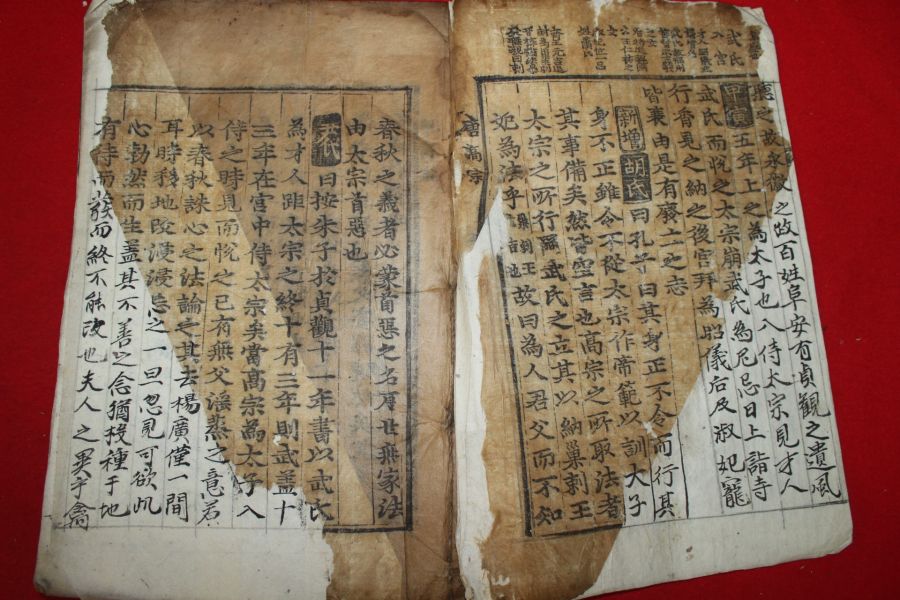 武氏
入宮
聽之故永徽之政百姓阜安有貞觀之遺風
五年上之為太子也入侍太宗見才人
武氏而悅之太宗崩武氏為尼忌日上詣寺
行香見之納之後宮拜為昭儀后及淑妃寵
皆衰由是有廢立之志
新增 胡氏曰孔子曰其身正不令而行其
身不正雖令不從太宗作帝範以訓大子
其事備矣然皆空言也高宗之所取法者
太宗之所行爾武氏之立其以納巢剌王
妃為法乎巢剌王吉也故曰為人君父而不知
唐高宗
春秋之義者必蒙首惡之名世無家法
由太宗首惡也
曰按朱子於貞觀十一年書以武氏
為才人距太宗之終十有三年則武盖十
三年在宮中侍太宗矣當高宗為太子入
侍之時見而悅之已有無父滛烝之意
以春秋誅心之法論之其去楊廣僅一間
耳時移地改浸浸忘之一旦忽見可欲
心勃然而生盖其不善之念猶投種于地
有待而發而終不能改也夫人之異乎禽